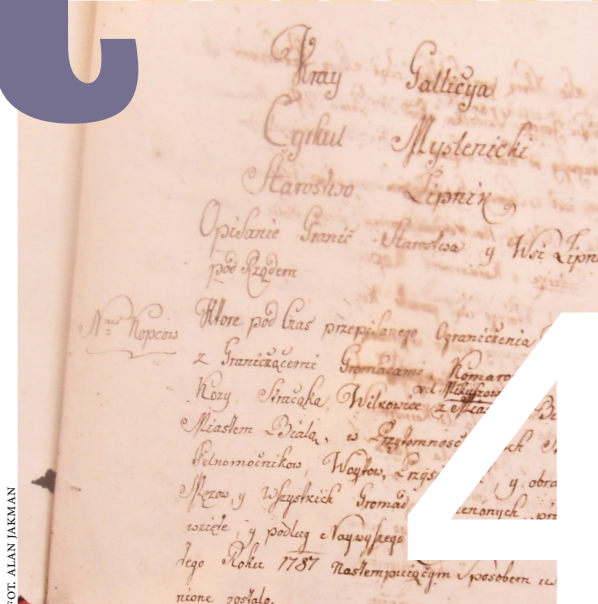 Kray Gallicya
Cyrkuł Myslenicki
Starostwo Lipnik
Opisanie Granic Starostwa y Wsi Lipn
pod Rządem
Nrus Kopcow
Ktore pod Czas przepisanego Ograniczenia
z Graniczącemi Gromadami Komaro
Kozy Stracąka Wilkowice z Mia
Miastem Białą, w Przytomnosc
Pełnomocnikow, Woytow, Przys y obra
Męzow, y Wszystkich Gromad
wzięte, y podług Naywyższego
tego Roku 1787 nastempuiącym sposobem u
nione zostało.
4
FOT. ALAN JAKMAN